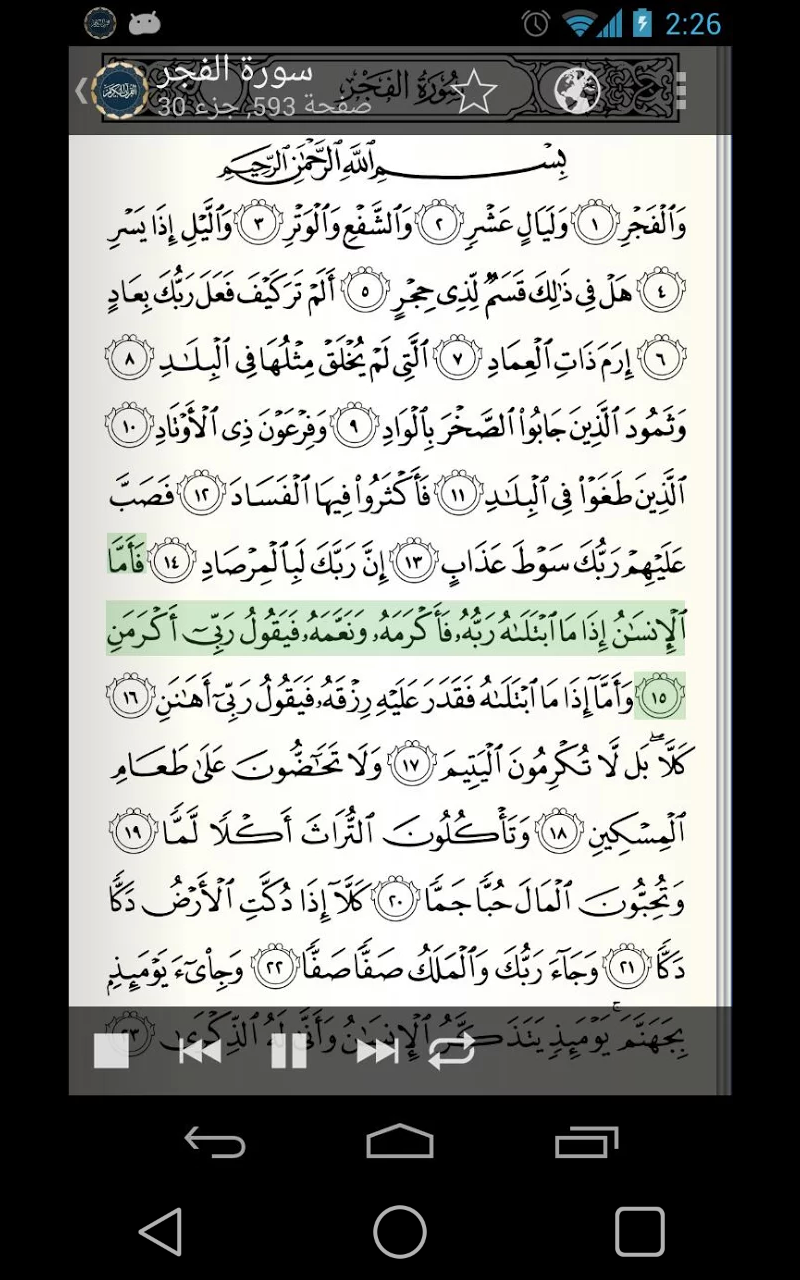 2:26
سورة الفجر
صفحة 593, جزء 30
سُورَةُ الفَجْرِ
بِسْمِ اللَّهِ الرَّحْمَٰنِ الرَّحِيمِ
وَٱلْفَجْرِ ١ وَلَيَالٍ عَشْرٍ ٢ وَٱلشَّفْعِ وَٱلْوَتْرِ ٣ وَٱلَّيْلِ إِذَا يَسْرِ
٤ هَلْ فِى ذَٰلِكَ قَسَمٌ لِّذِى حِجْرٍ ٥ أَلَمْ تَرَ كَيْفَ فَعَلَ رَبُّكَ بِعَادٍ
٦ إِرَمَ ذَاتِ ٱلْعِمَادِ ٧ ٱلَّتِى لَمْ يُخْلَقْ مِثْلُهَا فِى ٱلْبِلَـٰدِ ٨
وَثَمُودَ ٱلَّذِينَ جَابُوا۟ ٱلصَّخْرَ بِٱلْوَادِ ٩ وَفِرْعَوْنَ ذِى ٱلْأَوْتَادِ ١٠
ٱلَّذِينَ طَغَوْا۟ فِى ٱلْبِلَـٰدِ ١١ فَأَكْثَرُوا۟ فِيهَا ٱلْفَسَادَ ١٢ فَصَبَّ
عَلَيْهِمْ رَبُّكَ سَوْطَ عَذَابٍ ١٣ إِنَّ رَبَّكَ لَبِٱلْمِرْصَادِ ١٤ فَأَمَّا
ٱلْإِنسَـٰنُ إِذَا مَا ٱبْتَلَىٰهُ رَبُّهُۥ فَأَكْرَمَهُۥ وَنَعَّمَهُۥ فَيَقُولُ رَبِّىٓ أَكْرَمَنِ
١٥ وَأَمَّآ إِذَا مَا ٱبْتَلَىٰهُ فَقَدَرَ عَلَيْهِ رِزْقَهُۥ فَيَقُولُ رَبِّىٓ أَهَـٰنَنِ ١٦
كَلَّا ۖ بَل لَّا تُكْرِمُونَ ٱلْيَتِيمَ ١٧ وَلَا تَحَـٰٓضُّونَ عَلَىٰ طَعَامِ
ٱلْمِسْكِينِ ١٨ وَتَأْكُلُونَ ٱلتُّرَاثَ أَكْلًا لَّمًّا ١٩
وَتُحِبُّونَ ٱلْمَالَ حُبًّا جَمًّا ٢٠ كَلَّآ إِذَا دُكَّتِ ٱلْأَرْضُ دَكًّا
دَكًّا ٢١ وَجَآءَ رَبُّكَ وَٱلْمَلَكُ صَفًّا صَفًّا ٢٢ وَجِا۟ىٓءَ يَوْمَئِذٍۭ
بِجَهَنَّمَ ۚ يَوْمَئِذٍ يَتَذَكَّرُ ٱلْإِنسَـٰنُ وَأَنَّىٰ لَهُ ٱلذِّكْرَىٰ ٢٣